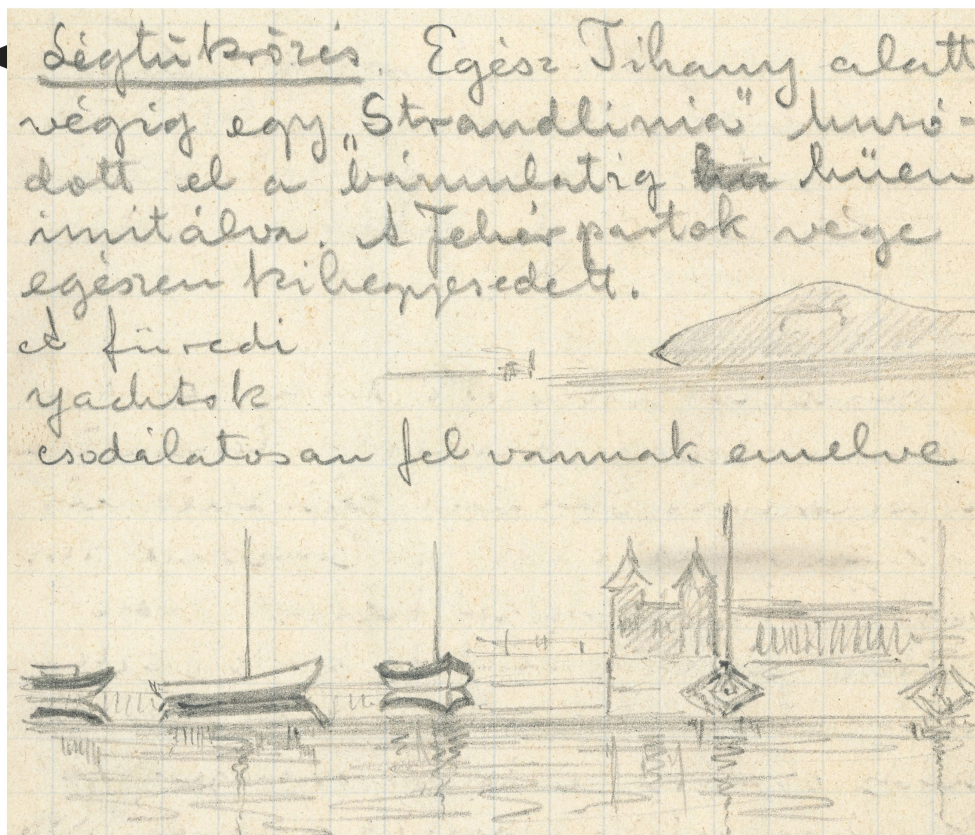 Légtükrözés. Egész Tihany alatt
végig egy „Strandlinia" huró-
dott el a bámulatig hüen
imitálva. A Fehérpartok vége
egészen kihegyesedett.
A füredi
yachtok
csodálatosan fel vannak emelve